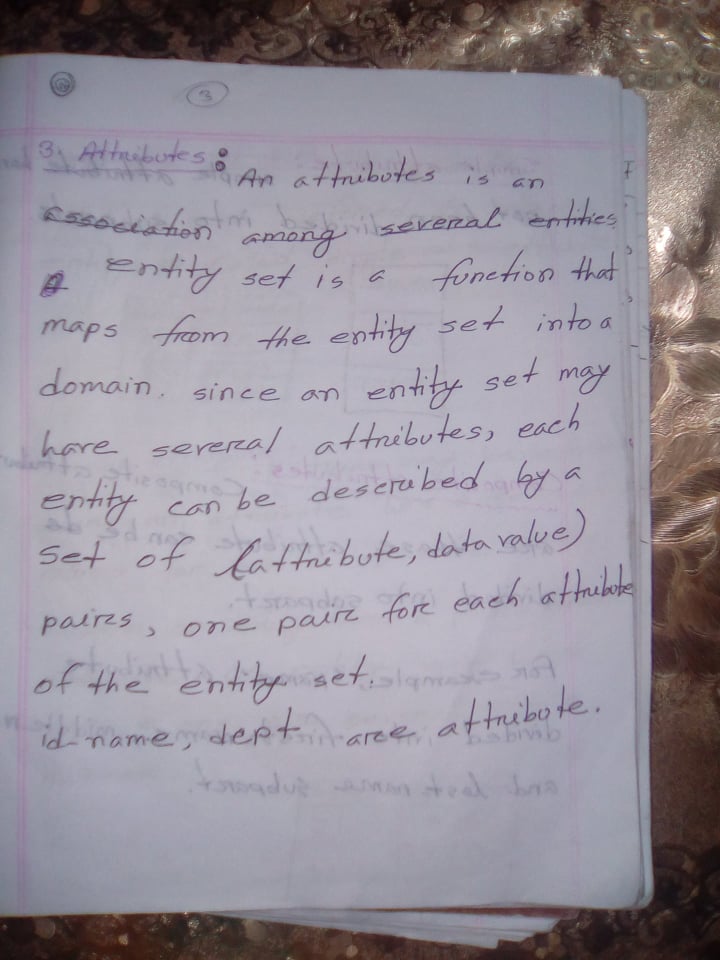 3
3. Attributes :
An attributes is an
association among several entities
entity set is a function that
maps from the entity set into a
domain. since an entity set may
have several attributes, each
entity can be described by a
set of (attribute, data value)
pairs, one pair for each attribute
of the entity set.
id-name, dept are attribute.